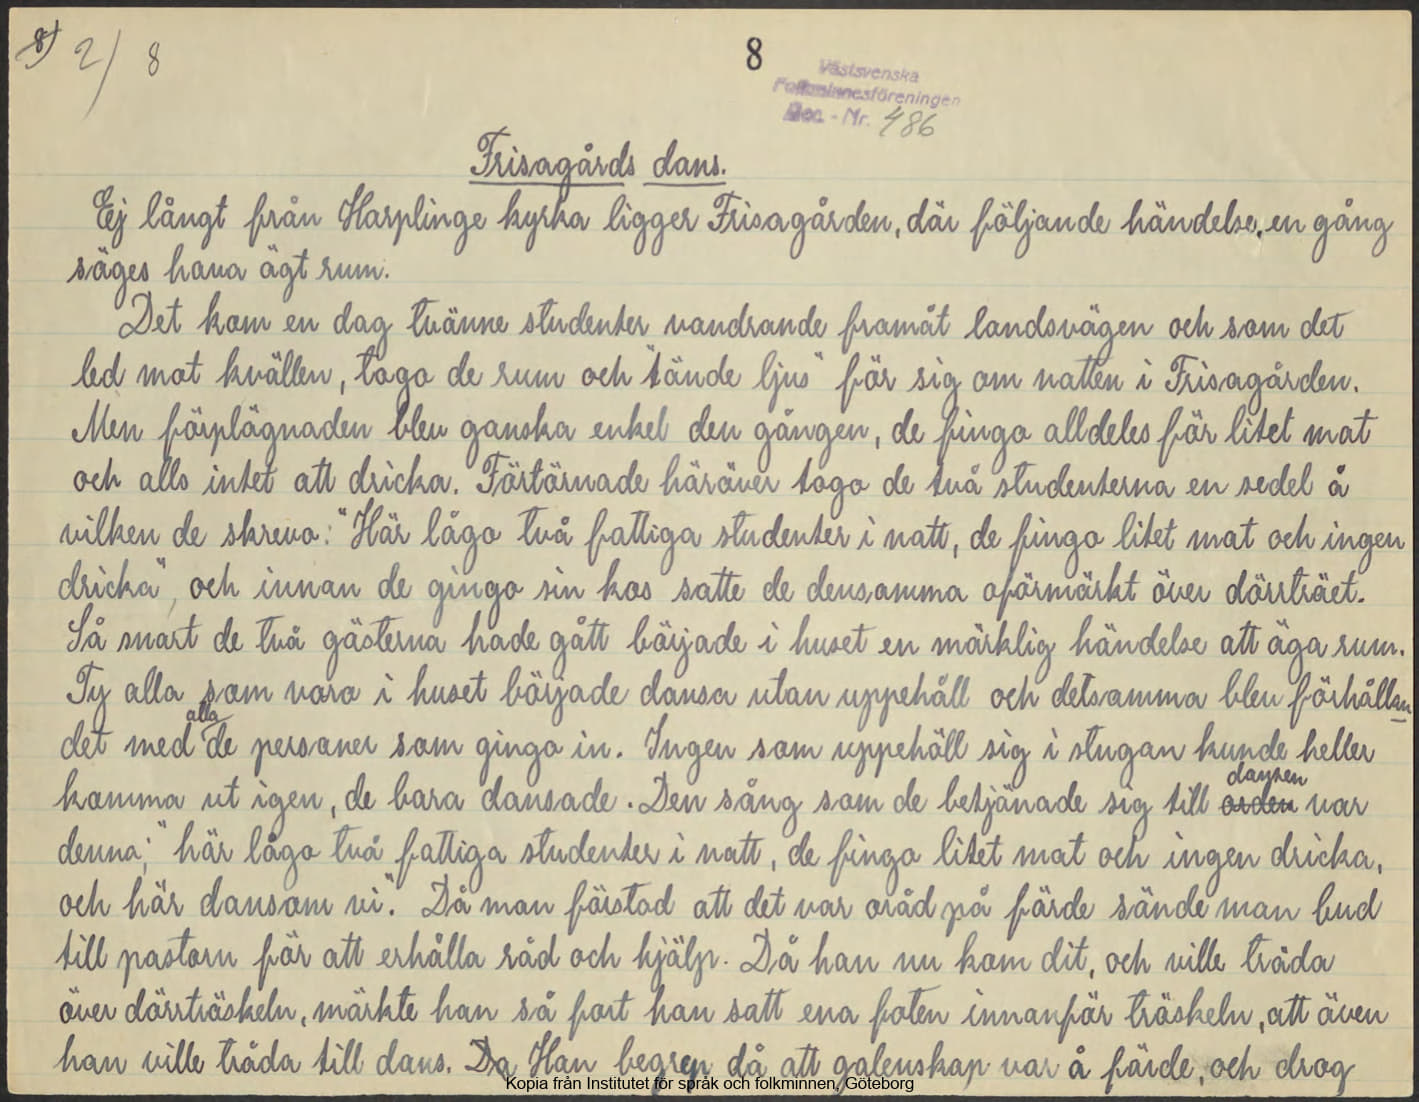 8) 2/ 8
8
Västsvenska
Folkminnesföreningen
Acc. - Nr. 486
Frisagårds dans.
Ej långt från Harplinge kyrka ligger Frisagården, där följande händelse, en gång
säges hava ägt rum.
Det kom en dag tvänne studenter vandrande framåt landsvägen och som det
led mot kvällen, togo de rum och "tände ljus" för sig om natten i Frisagården.
Men förplägnaden blev ganska enkel den gången, de fingo alldeles för litet mat
och alls intet att dricka. Förtörnade häröver togo de två studenterna en sedel å
vilken de skrevo: "Här lågo två fattiga studenter i natt, de fingo litet mat och ingen
dricka", och innan de gingo sin kos satte de densamma oförmärkt över dörrträet.
Så snart de två gästerna hade gått började i huset en märklig händelse att äga rum.
Ty alla som voro i huset började dansa utan uppehåll och detsamma blev förhållan
det med alla de personer som gingo in. Ingen som uppehöll sig i stugan kunde heller
komma ut igen, de bara dansade. Den sång som de betjänade sig till orden dansen var
denna; "här lågo två fattiga studenter i natt, de fingo litet mat och ingen dricka,
och här dansom vi". Då man förstod att det var oråd på färde sände man bud
till pastorn för att erhålla råd och hjälp. Då han nu kom dit, och ville träda
över dörrtröskeln, märkte han så fort han satt ena foten innanför tröskeln, att även
han ville tråda till dans. Da Han begrep då att galenskap var å färde, och drog
Kopia från Institutet för språk och folkminnen, Göteborg